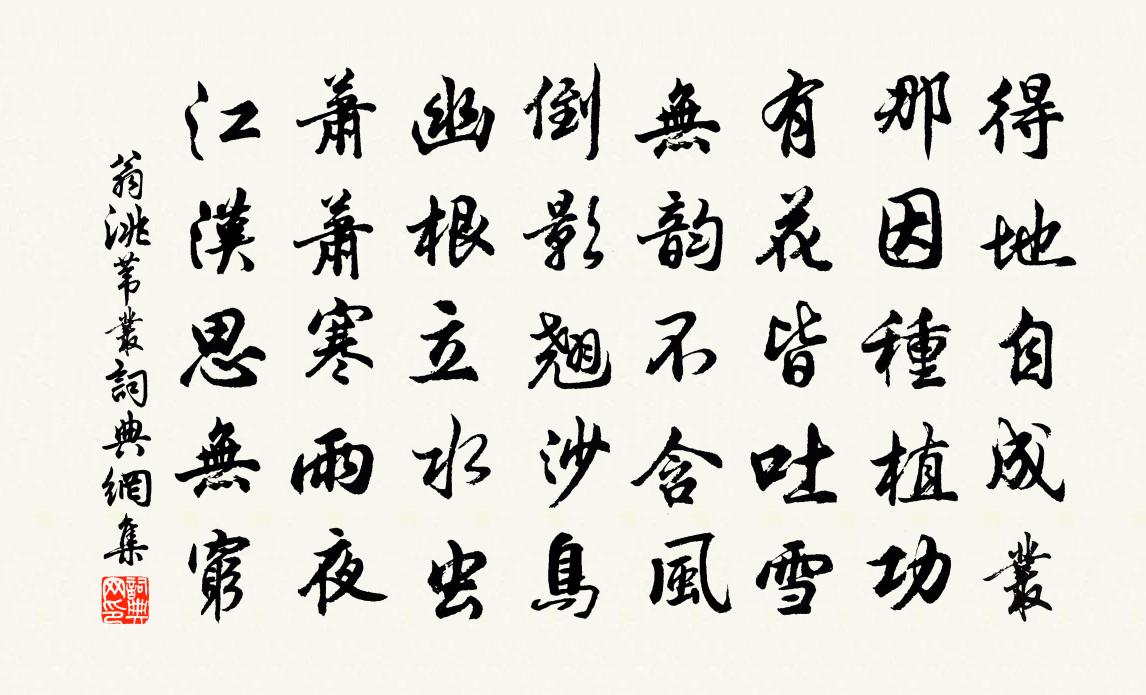 得地自成叢
那因種植功
有花皆吐雪
無韵不含風
倒影翹沙鳥
幽根立水虫
萧萧寒雨夜
江漢思無窮
翁洮苇叢詞典網集
詞典网印